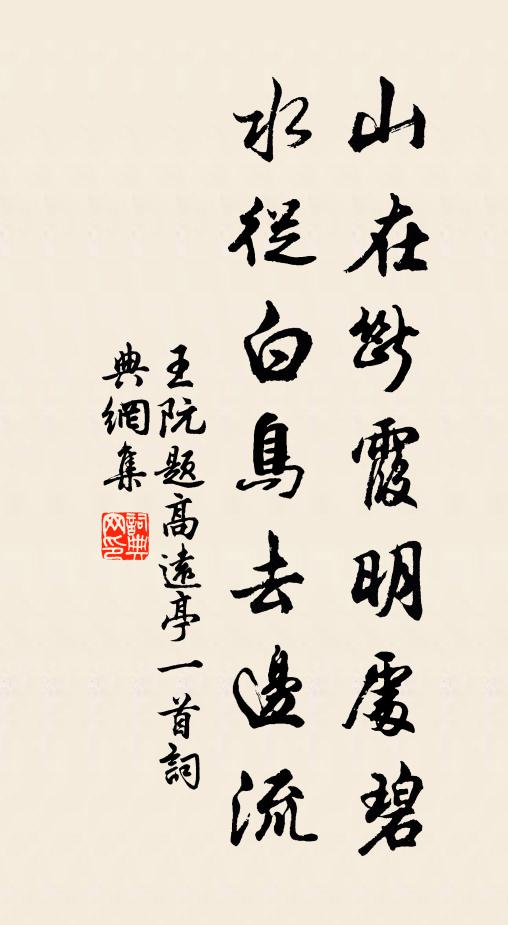 山在斷霞明處碧
水從白鳥去邊流
王阮題高遠亭一首詞
典網集
詞典網印